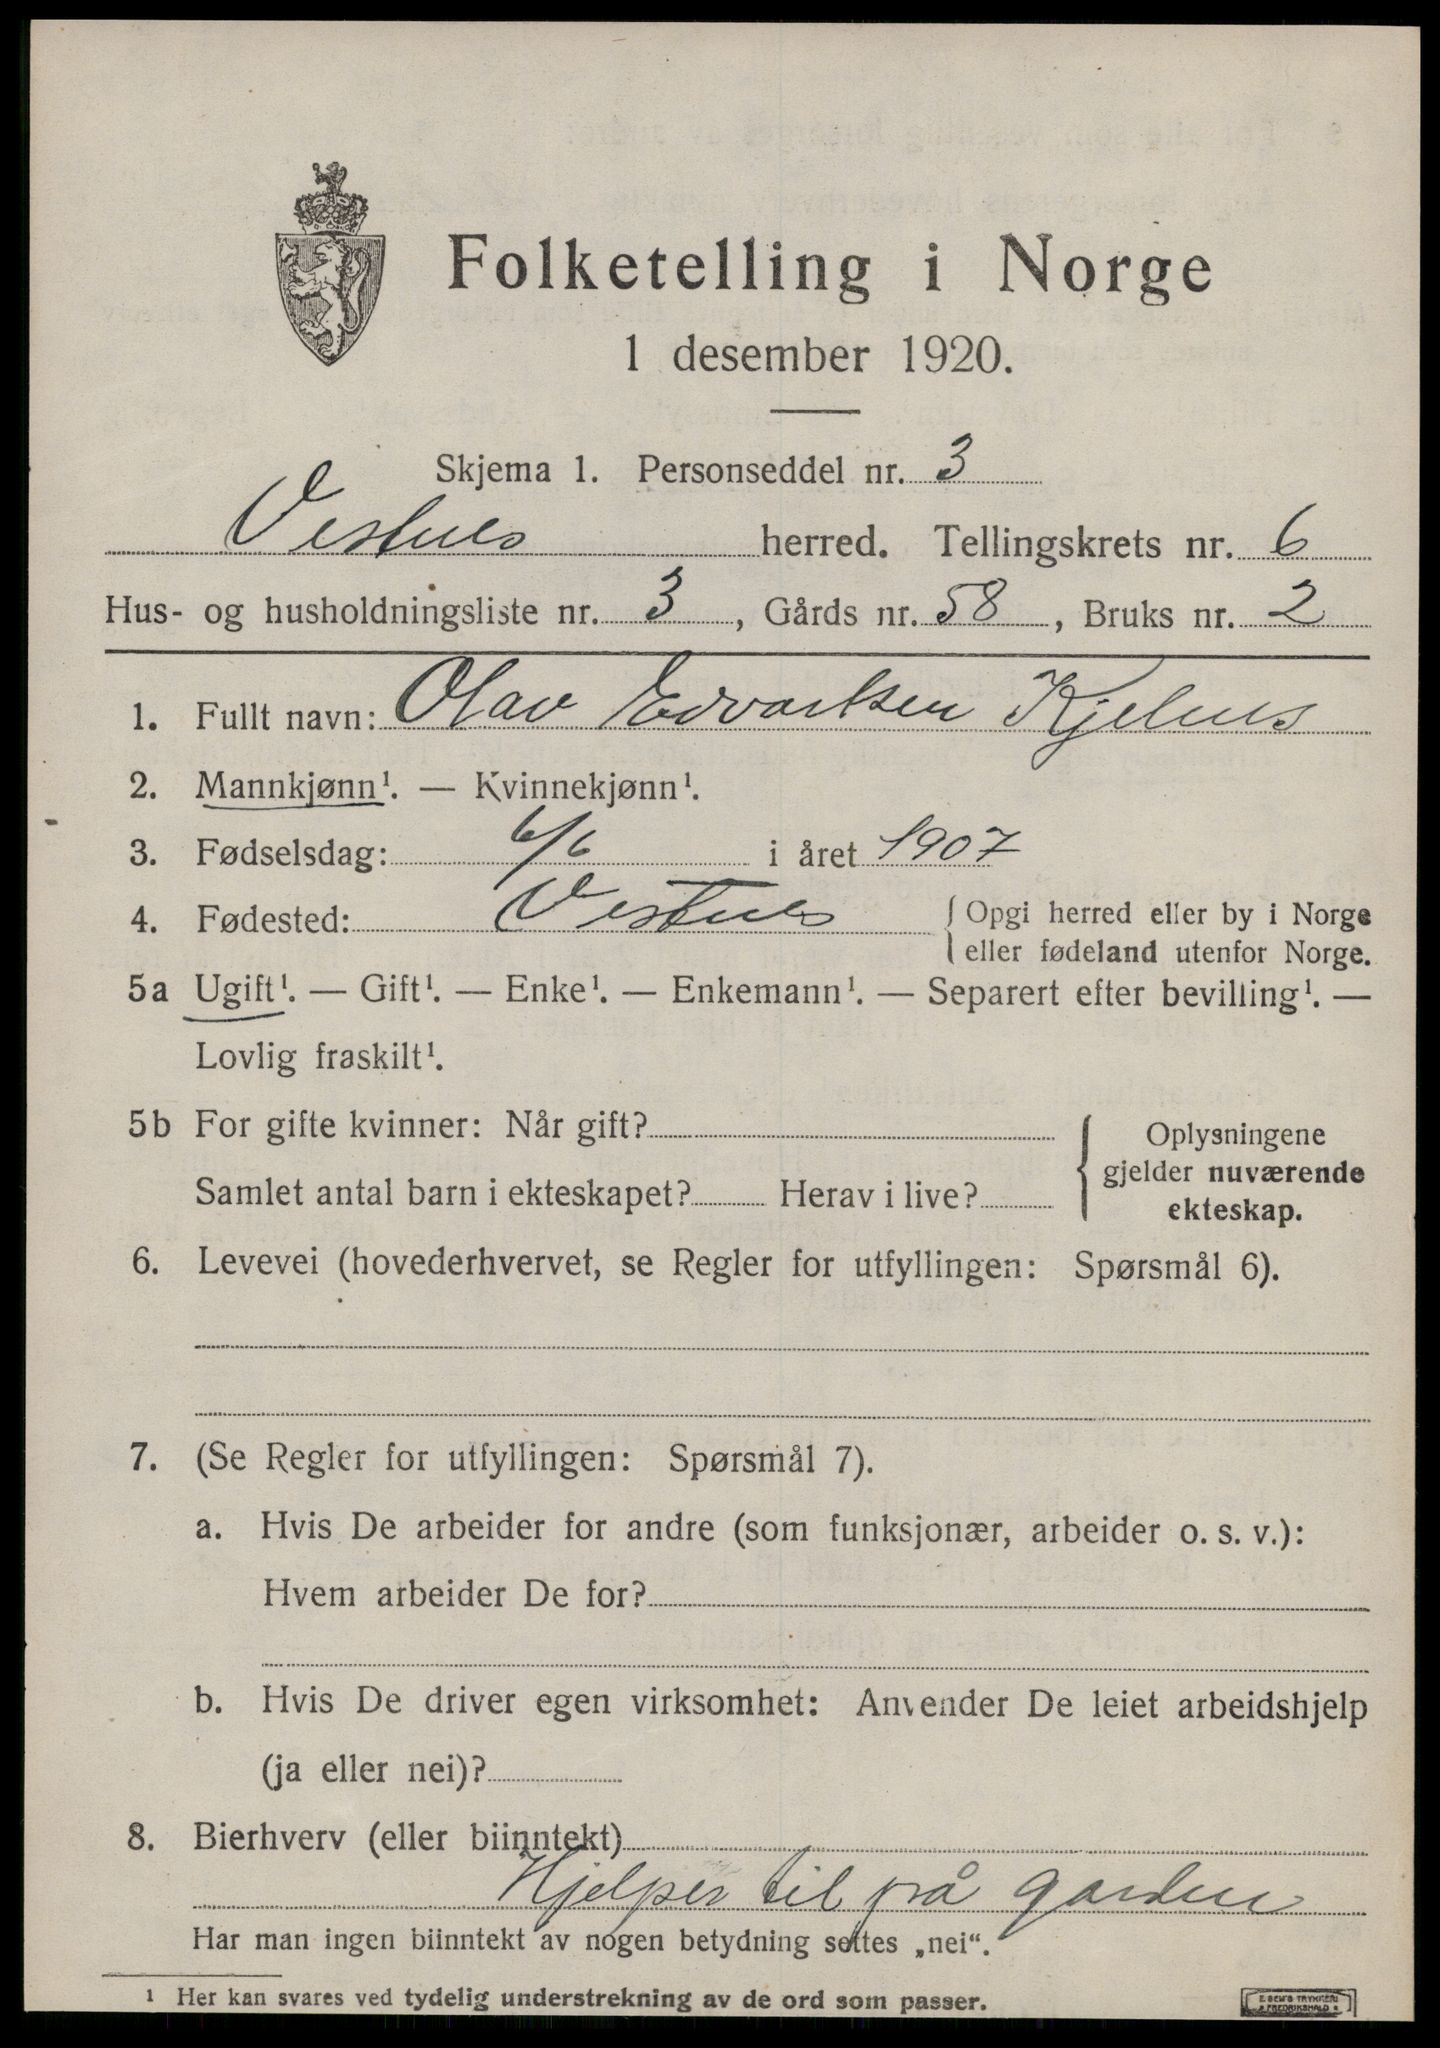 Folketelling i Norge
1 desember 1920.
Skjema 1. Personseddel nr. 3
Vestnes herred. Tellingskrets nr. 6
Hus- og husholdningsliste nr. 3, Gårds nr. 58, Bruks nr. 2
1. Fullt navn: Olav Edvartsen Kjelnes
2. Mannkjønn¹. — Kvinnekjønn¹.
3. Fødselsdag: 6/6 i året 1907
4. Fødested: Vestnes { Opgi herred eller by i Norge
eller fødeland utenfor Norge.
5a Ugift¹. — Gift¹. — Enke¹. — Enkemann¹. — Separert efter bevilling¹. —
Lovlig fraskilt¹.
5b For gifte kvinner: Når gift?
Samlet antal barn i ekteskapet? Herav i live?
{ Oplysningene
gjelder nuværende
ekteskap.
6. Levevei (hovederhvervet, se Regler for utfyllingen: Spørsmål 6).
7. (Se Regler for utfyllingen: Spørsmål 7).
a. Hvis De arbeider for andre (som funksjonær, arbeider o. s. v.):
Hvem arbeider De for?
b. Hvis De driver egen virksomhet: Anvender De leiet arbeidshjelp
(ja eller nei)?
8. Bierhverv (eller biinntekt)
Hjelper til på garden
Har man ingen biinntekt av nogen betydning settes „nei“.
¹ Her kan svares ved tydelig understrekning av de ord som passer.
E. SEM'S TRYKKERI
FREDRIKSHALD